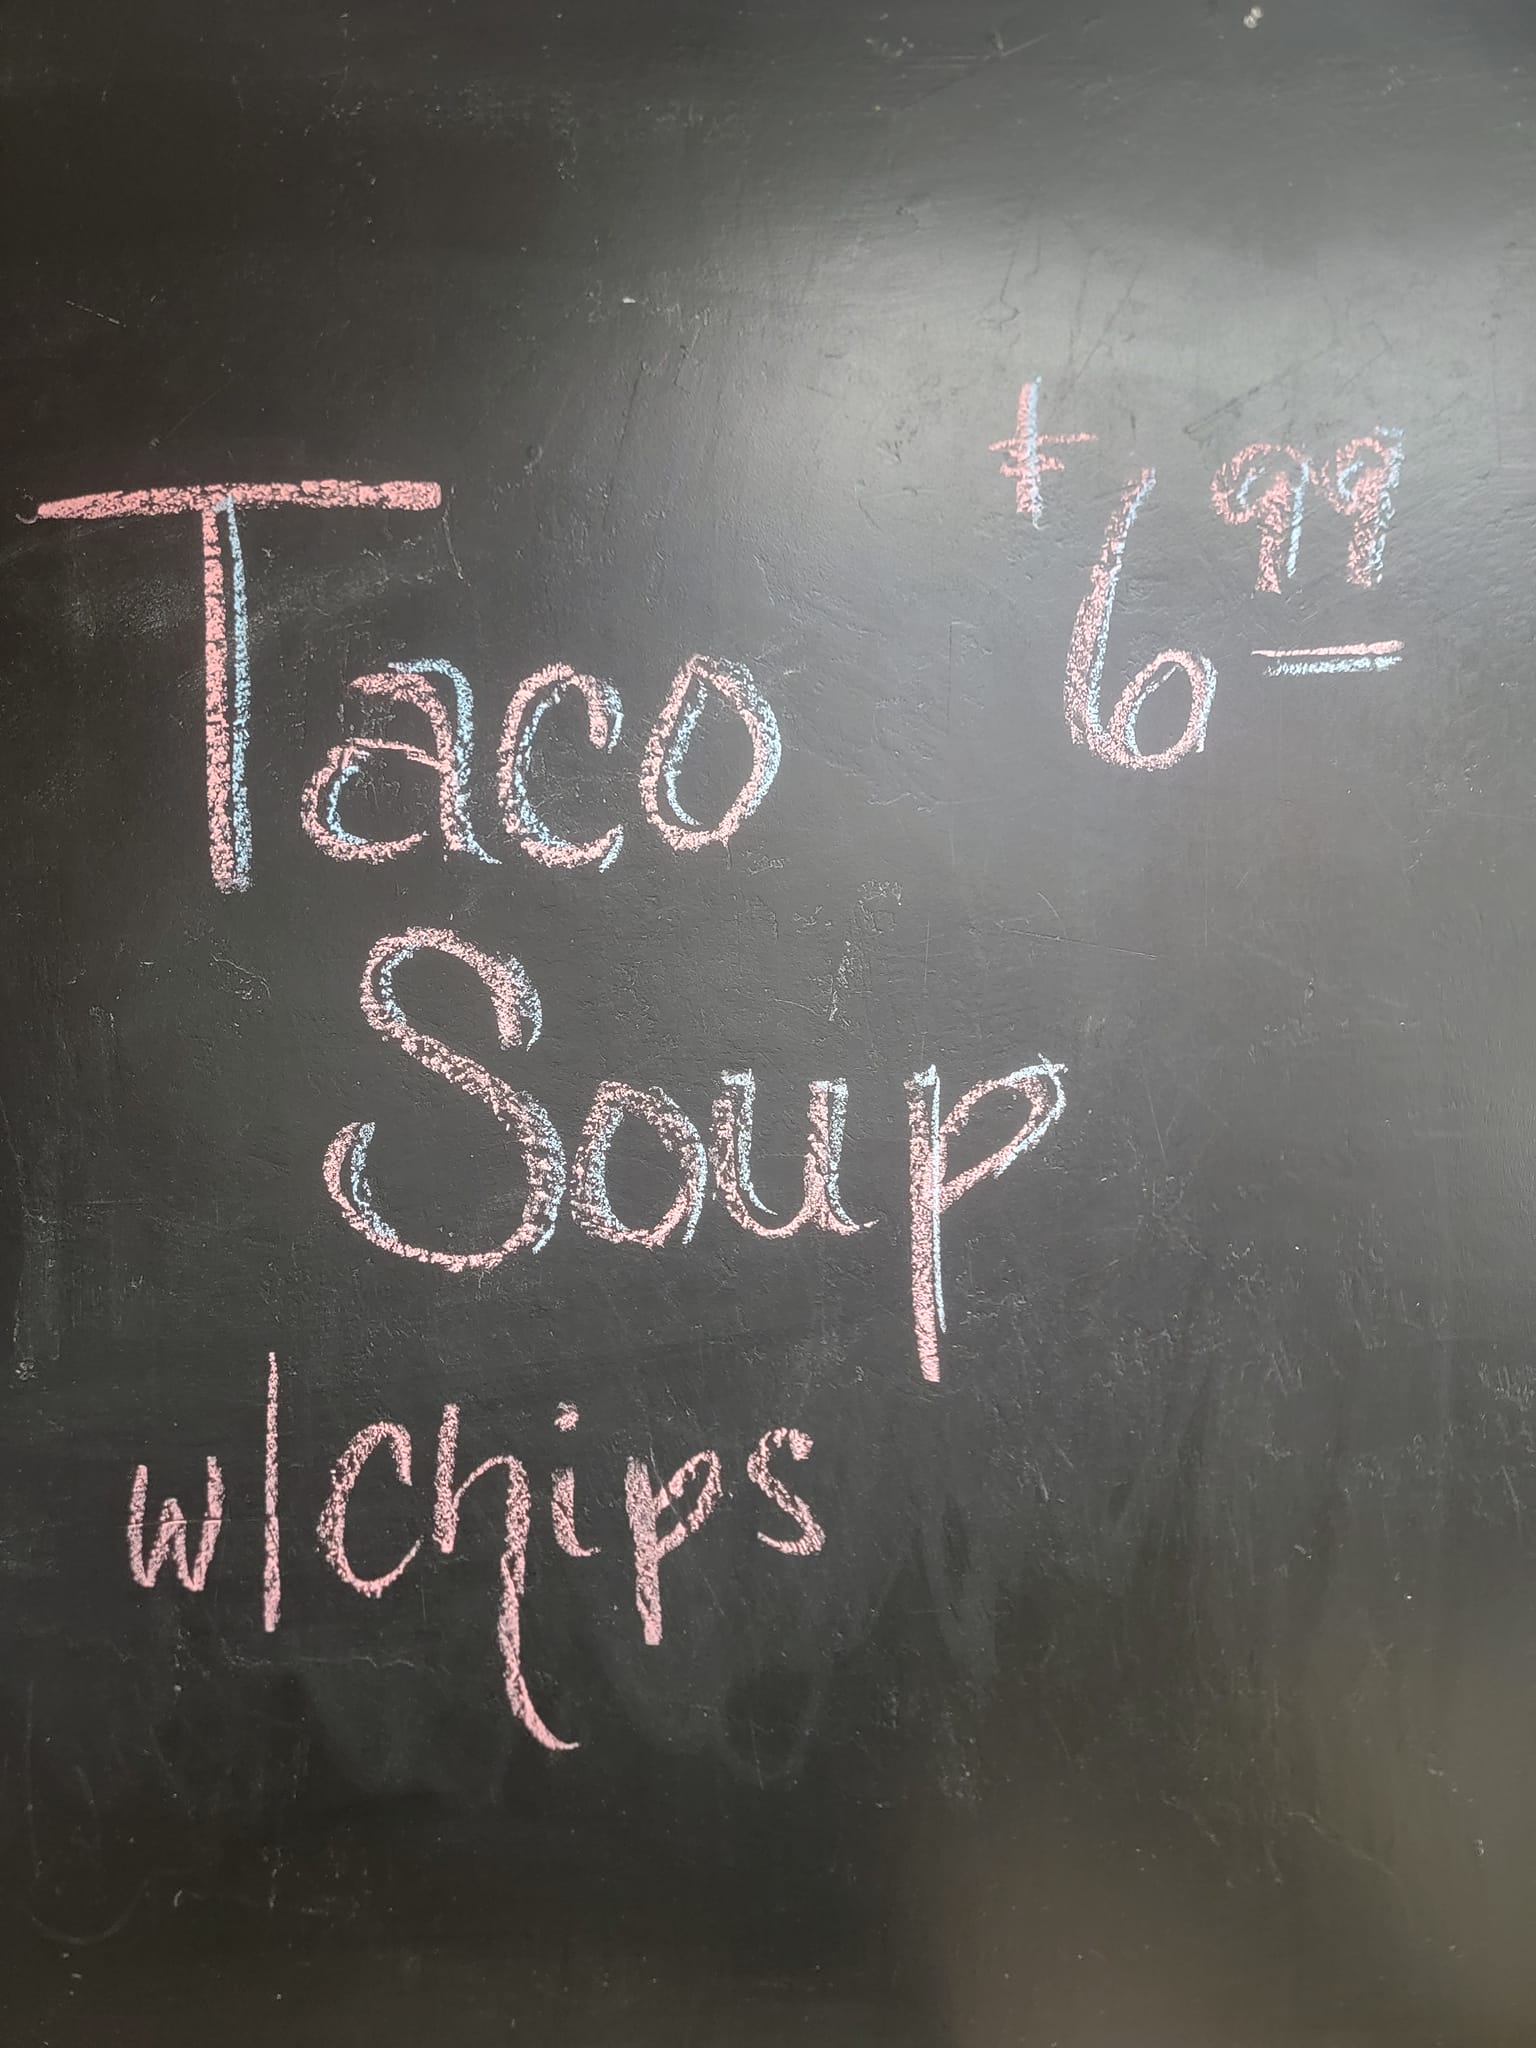 Taco $6.99
Soup
w/chips